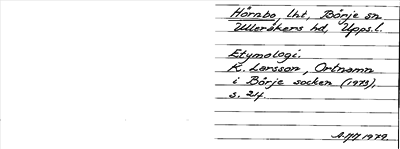 Hörnbo, lht, Börje sn
Ulleråkers hd, Upps.l.
Etymologi.
K. Larsson, Ortnamn
i Börje socken (1973),
s. 24.
1979.